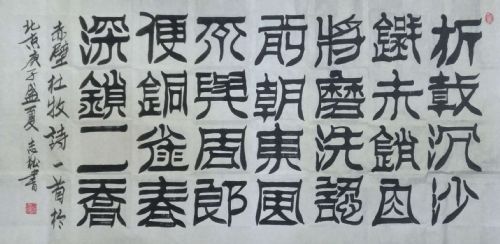 折戟沉沙
鐵未銷自
將磨洗認
前朝東風
不與周郎
便銅雀春
深鎖二喬
赤壁杜牧詩一首於
北京庚子盛夏志松書